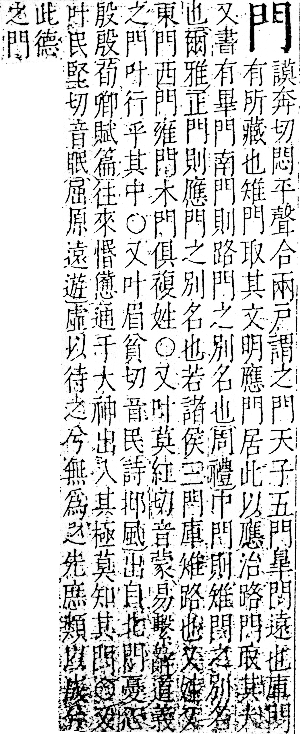 門
謨奔切悶平聲合兩戸謂之門天子五門臯門遠也庫門
有所藏也雉門取其文明應門居此以應治路門取其大
又書有畢門南門則路門之別名也周禮中門則雉門之別名
也爾雅正門則應門之別名也若諸侯三門庫雉路也又姓又
東門西門雍門木門俱複姓○又叶莫紅切音蒙易繫辭道義
之門叶行乎其中○又叶眉貧切音民詩邶風出自北門憂心
殷殷荀卿賦篇往來惛憊通于大神出入其極莫知其門○又
叶民堅切音眠屈原遠遊虛以待之兮無為之先庶類以成兮
此德之門